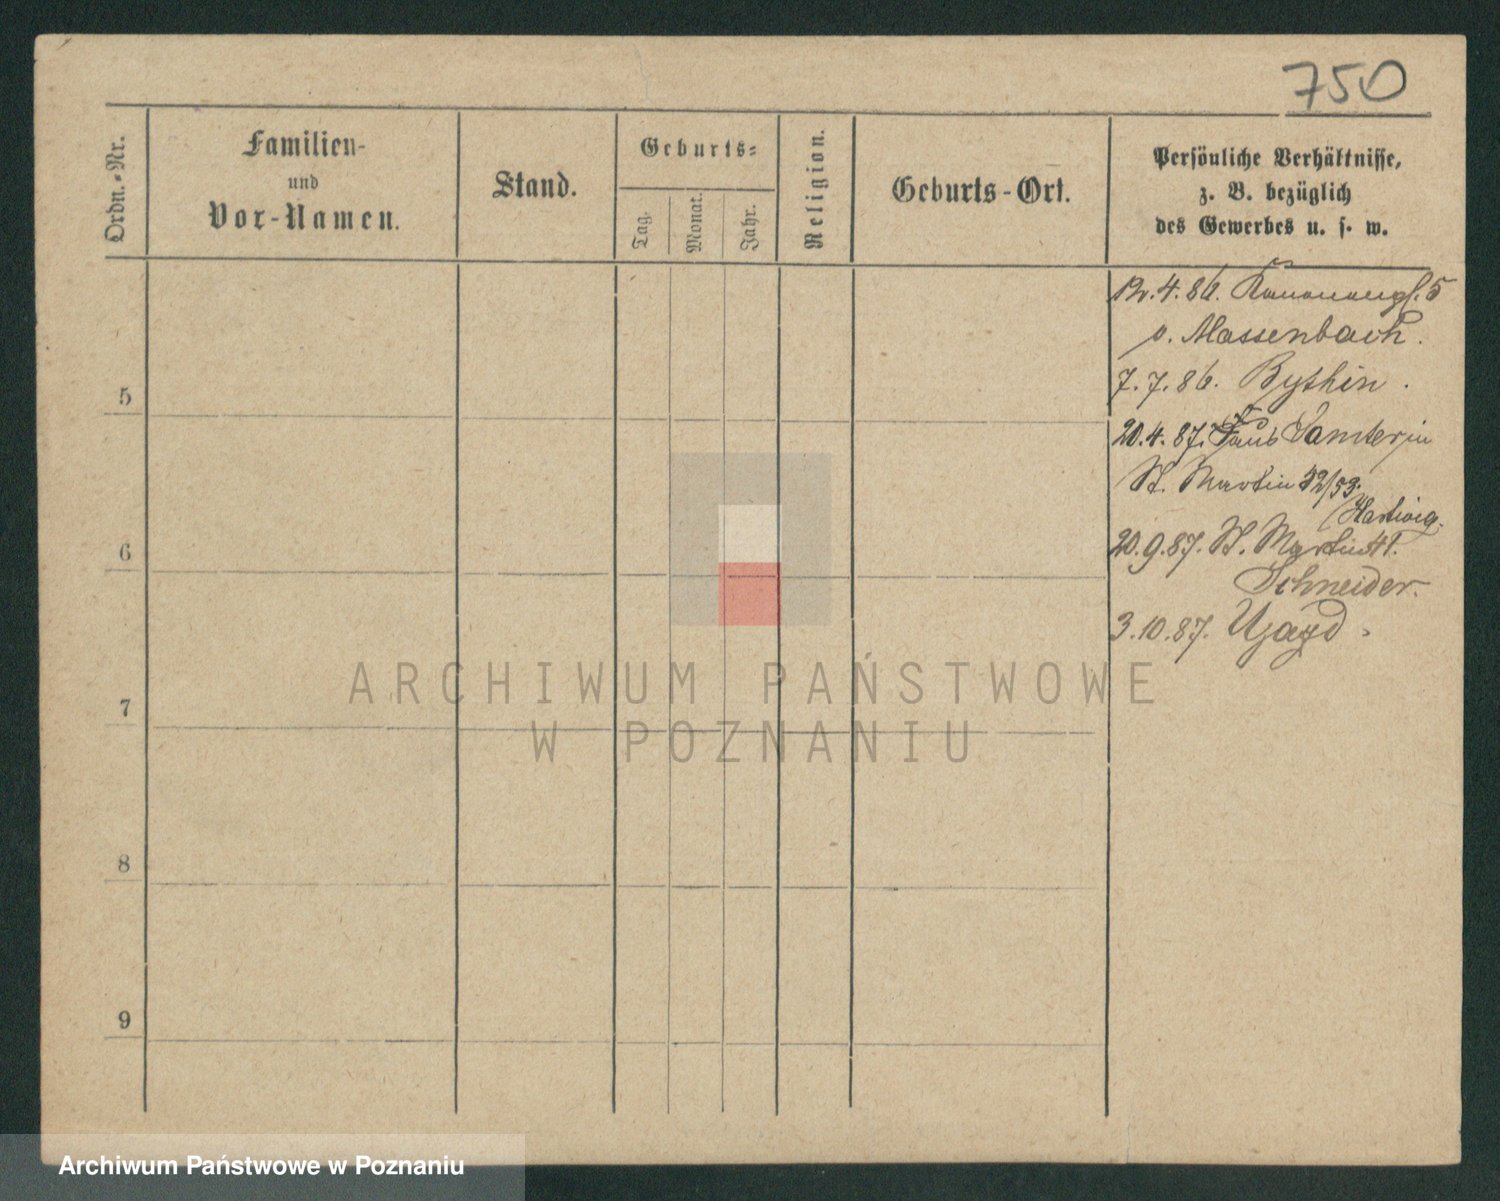 750
Ordn.-Nr.
Familien-
und
Vor-Namen.
Stand.
Geburts-
Tag.
Monat.
Jahr.
Religion.
Geburts-Ort.
Persönliche Verhältnisse,
z. B. bezüglich
des Gewerbes u. s. w.
12.4.86. Kanonengs. 5
v. Massenbach.
7.7.86. Bythin.
20.4.87. Samter in
St. Martin 52/53.
Hartwig.
20.9.87. St. Martin 41.
Schneider.
3.10.87. Ujazd.
5
6
7
8
9
ARCHIWUM PAŃSTWOWE
W POZNANIU
Archiwum Państwowe w Poznaniu